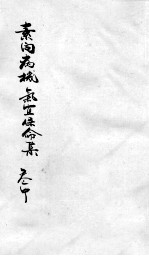 素問病機氣宜保命集 卷中